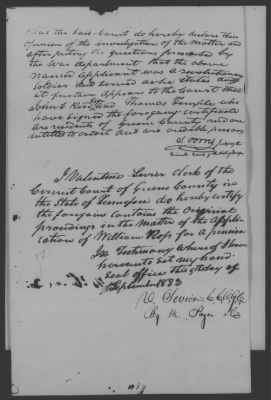 And the said Court do hereby declare their
opinion of the investigation of the matter and
after puting the questions prescribed by
the War department that the above
named applicant was a revolutionary
soldier and served as he States and
it further appears to the Court that
John & Ross Esq and Thomas Temple who
have signed the foregoing certificate
are residents of Green County and are
intitled to credit and are credible persons

I Valentine Sevier Clerk of the
Circuit Court of Greene County in
the State of Tennessee do hereby certify
the foregoing contains the original
proceedings in the Matter of the Appli
cation of William Ross for a pension
In Testimony whereof I have
hereunto set my hand
Seal office this day of
September 1833
V. Sevier C
By M. Payne